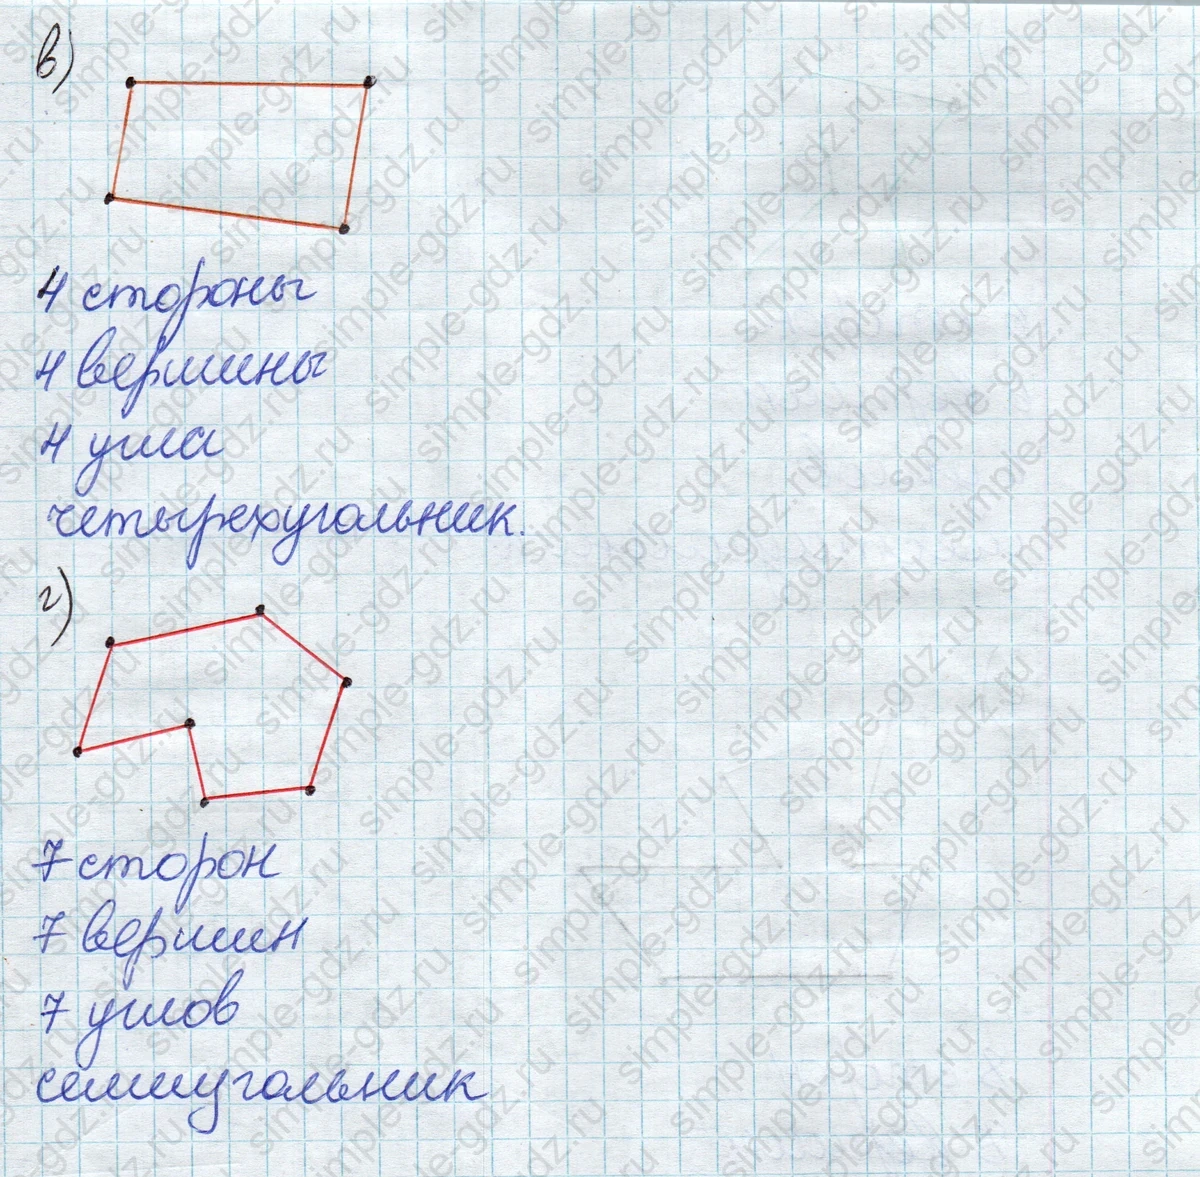 в)
4 стороны
4 вершины
4 угла
четырехугольник.
г)
7 сторон
7 вершин
7 углов
семиугольник
simple-gdz.ru